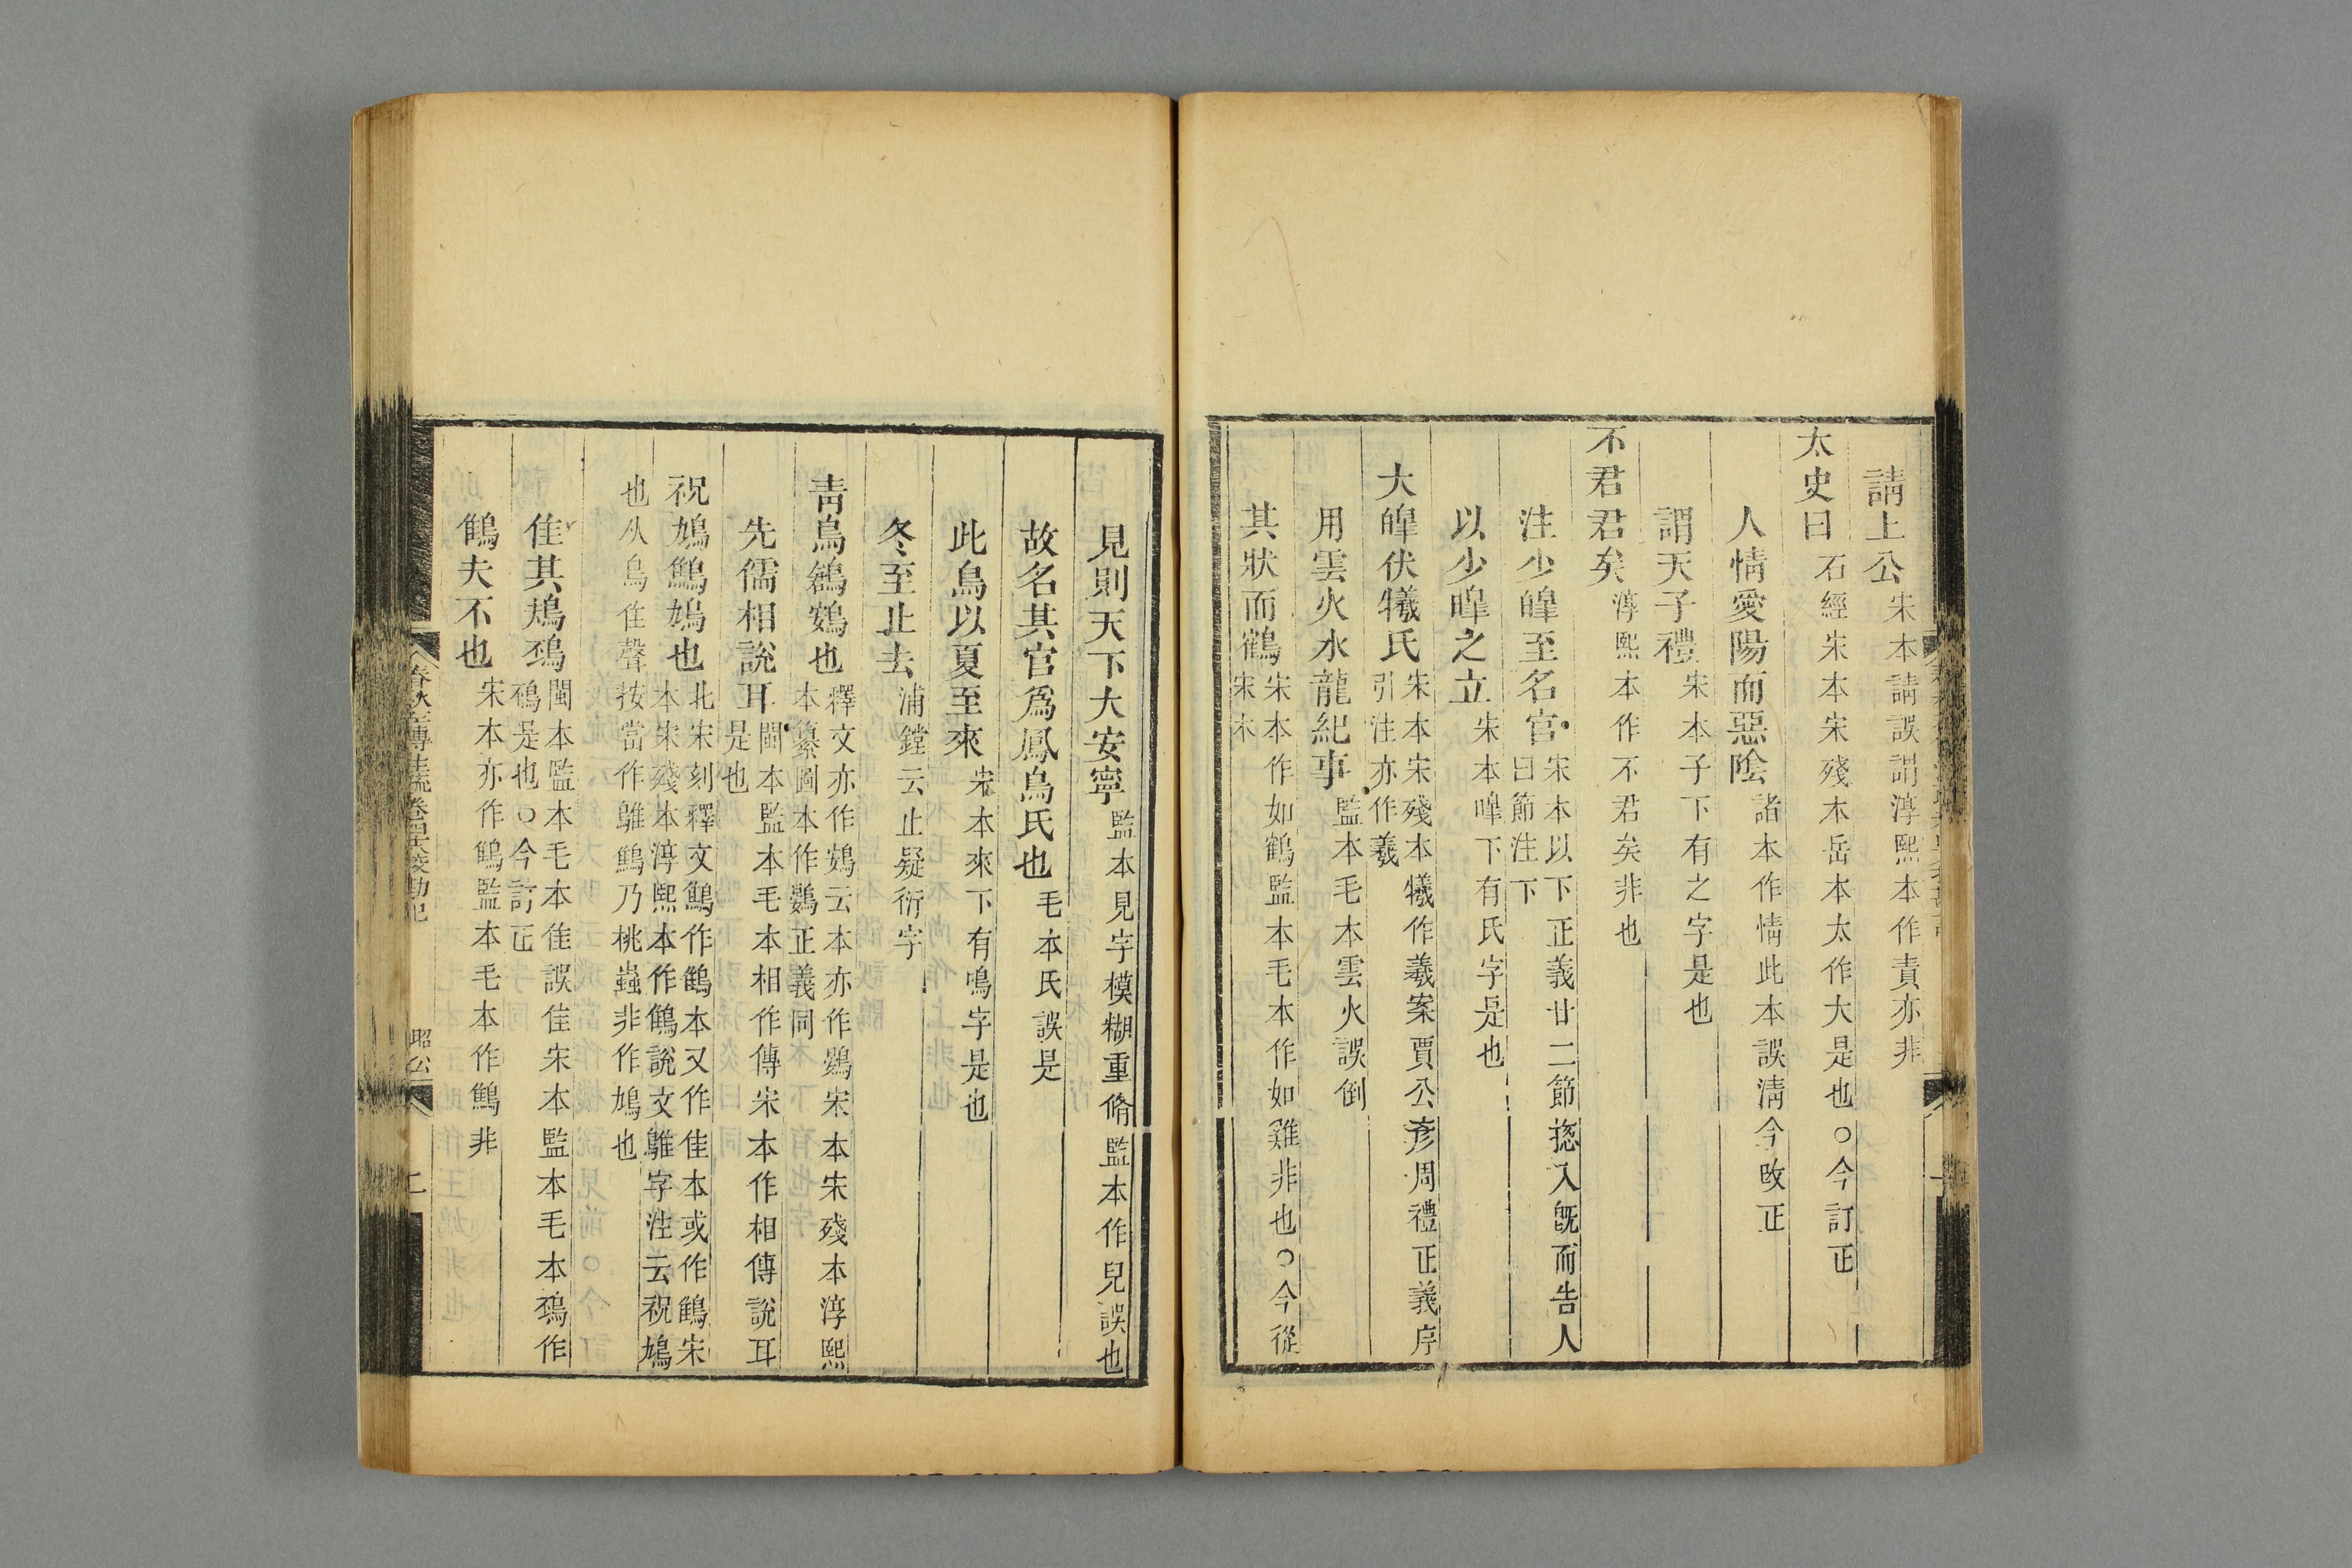 請上公宋本請誤謂淳熙本作責亦非
太史曰石經宋本宋殘本岳本太作大是也○今訂正
人情愛陽而惡陰諸本作情此本誤淸今改正
謂天子禮宋本子下有之字是也
不君君矣淳熙本作不君矣非也
注少皥至名官宋本以下正義廿二節揔入旣而告人
曰節注下
以少皥之立宋本皥下有氏字是也
大皥伏犧氏宋本宋殘本犧作羲案賈公彥周禮正義序
引注亦作羲
用雲火水龍紀事監本毛本雲火誤倒
其狀而鶴宋本作如鶴監本毛本作如雞非也○今從
宋本
見則天下大安寧監本見字模糊重脩監本作兒誤也
故名其官爲鳳鳥氏也毛本氏誤是
此鳥以夏至來宋本來下有鳴字是也
冬至止去浦鏜云止疑衍字
靑鳥鶬鴳也釋文亦作鴳云本亦作鷃宋本宋殘本淳熙
本纂圖本作鷃正義同
先儒相說耳閩本監本毛本相作傳宋本作相傳說耳
是也
祝鳩鷦鳩也北宋刻釋文鷦作鶴本又作隹本或作鶴宋
本宋殘本淳熙本作鶴說文鵻字注云祝鳩
也从鳥隹聲按當作鵻鷦乃桃蟲非作鳩也
隹其鳺鴀閩本監本毛本隹誤佳宋本監本毛本鴀作
鴀是也○今訂正
鶴夫不也宋本亦作鶴監本毛本作鷦非
春秋左傳注疏卷四十八校勘記
昭公
二